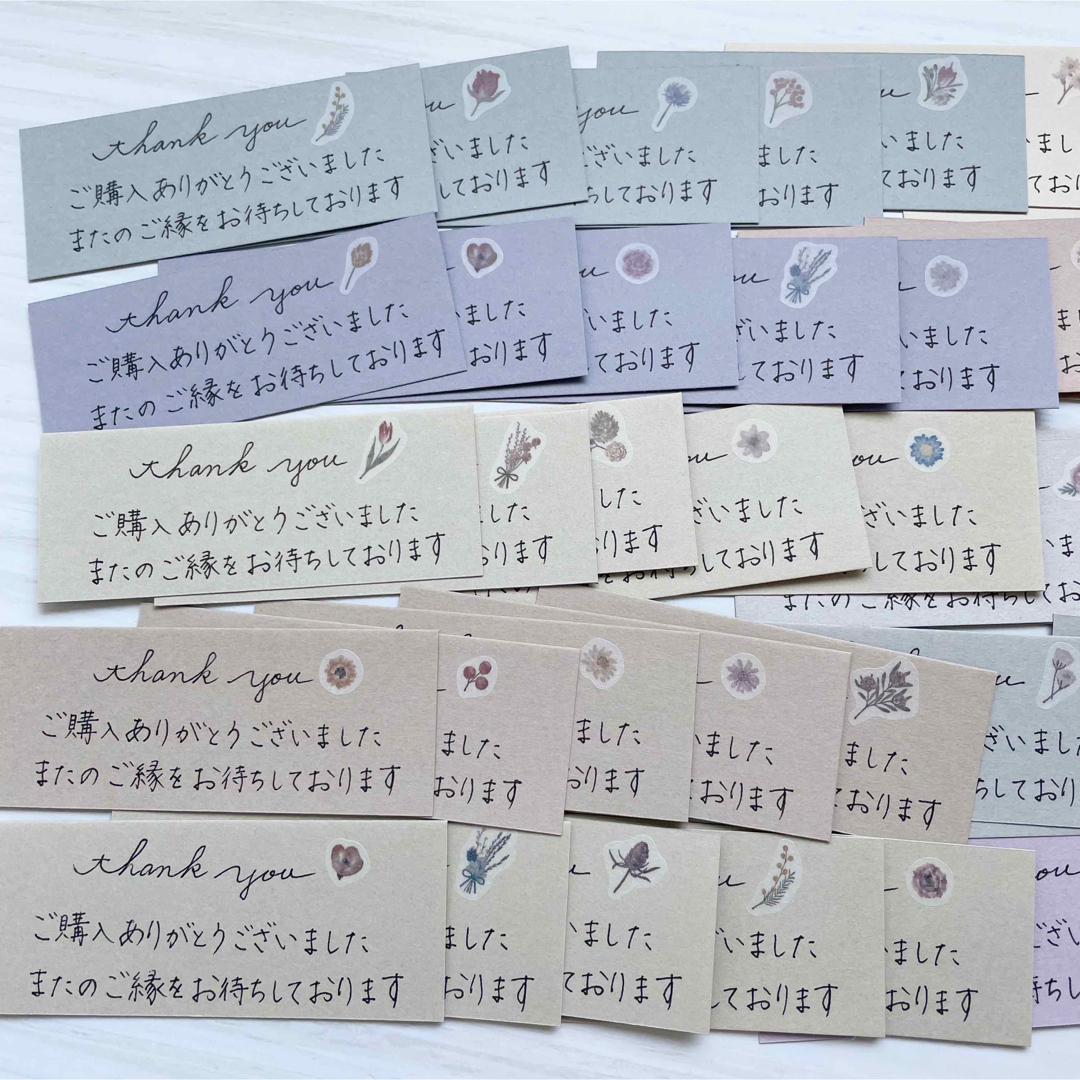 thank you
ご購入ありがとうございました
またのご縁をお待ちしております
ou
ざいました
しております
you
ございました
しております
ました
おります
ou
ざいました
ております
まし
ており
thank you
ご購入ありがとうございました
またのご縁をお待ちしております
いました
おります
u
いました
ております
ou
ざいました
しております
いました
ております
ま
お
thank you
ご購入ありがとうございました
またのご縁をお待ちしております
した
ります
した
ります
ou
いました
ております
ou
ざいました
しております
またのご縁をお待ちしてお
thank you
ご購入ありがとうございました
またのご縁をお待ちしております
ました
おります
ました
おります
いました
おります
ました
ております
ou
ざいました
しております
thank you
ご購入ありがとうございました
またのご縁をお待ちしております
ました
しております
いました
ております
u
いました
しております
いました
おります
ou
ござい
待ちし